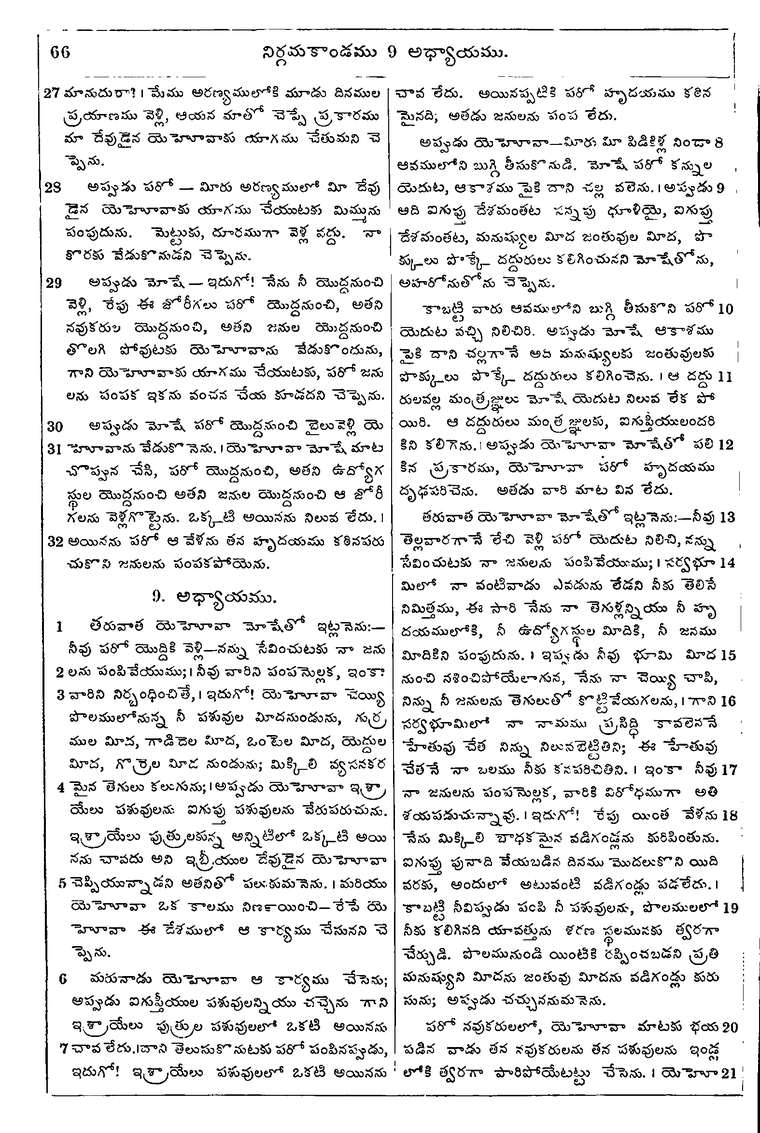 66
నిర్గమకాండము 9 అధ్యాయము.
27 మానుదురా?। మేము అరణ్యములోకి మూడు దినముల
ప్రయాణము వెళ్లి, ఆయన మాతో చెప్పే ప్రకారము
మా దేవుడైన యెహోవాకు యాగము చేతుమని చె
ప్పెను.
28 అప్పుడు పరో — మీరు అరణ్యములో మీ దేవు
డైన యెహోవాకు యాగము చేయుటకు మిమ్మును
పంపుదును. మెట్టుకు, దూరముగా వెళ్ల వద్దు. నా
కొరకు వేడుకొనుడని చెప్పెను.
29 అప్పుడు మోషే — ఇదుగో! నేను నీ యొద్దనుంచి
వెళ్లి, రేపు ఈ జోరీగలు పరో యొద్దనుంచి, అతని
నవుకరుల యొద్దనుంచి, అతని జనుల యొద్దనుంచి
తొలగి పోవుటకు యెహోవాను వేడుకొందును,
గాని యెహోవాకు యాగము చేయుటకు, పరో జను
లను పంపక ఇకను వంచన చేయ కూడదని చెప్పెను.
30 అప్పుడు మోషే పరో యొద్దనుంచి బైలువెళ్లి యె
31 హోవాను వేడుకొనెను.। యెహోవా మోషే మాట
చొప్పున చేసి, పరో యొద్దనుంచి, అతని ఉద్యోగ
స్థుల యొద్దనుంచి అతని జనుల యొద్దనుంచి ఆ జోరీ
గలను వెళ్లగొట్టెను. ఒక్కటి అయినను నిలువ లేదు.।
32 అయినను పరో ఆ వేళను తన హృదయము కఠినపరు
చుకొని జనులను పంపకపోయెను.
9. అధ్యాయము.
1 తరువాత యెహోవా మోషేతో ఇట్లనెను:—
నీవు పరో యొద్దికి వెళ్లి—నన్ను సేవించుటకు నా జను
2 లను పంపివేయుము;। నీవు వారిని పంపనొల్లక, ఇంకా
3 వారిని నిర్బంధించితే,। ఇదుగో! యెహోవా చెయ్యి
పొలములోనున్న నీ పశువుల మీదనుండును, గుర్ర
ముల మీద, గాడిదెల మీద, ఒంటెల మీద, యెద్దుల
మీద, గొర్రెల మీద నుండును; మిక్కిలి వ్యసనకర
4 మైన తెగులు కలుగును;। అప్పుడు యెహోవా ఇశ్రా
యేలు పశువులను ఐగుప్తు పశువులను వేరుపరుచును.
ఇశ్రాయేలు పుత్రులకున్న అన్నిటిలో ఒక్కటి అయి
నను చావదు అని ఇబ్రీయుల దేవుడైన యెహోవా
5 చెప్పియున్నాడని అతనితో పలుకుమనెను.। మరియు
యెహోవా ఒక కాలము నిణ౯యించి—రేపే యె
హోవా ఈ దేశములో ఆ కార్యము చేసునని చె
ప్పెను.
6 మరునాడు యెహోవా ఆ కార్యము చేసెను;
అప్పుడు ఐగుప్తీయుల పశువులన్నియు చచ్చెను గాని
ఇశ్రాయేలు పుత్రుల పశువులలో ఒకటి అయినను
7 చావ లేదు.। దాని తెలుసుకొనుటకు పరో పంపినప్పుడు,
ఇదుగో! ఇశ్రాయేలు పశువులలో ఒకటి అయినను
చావ లేదు. అయినప్పటికి పరో హృదయము కఠిన
మైనది; అతడు జనులను పంప లేదు.
అప్పుడు యెహోవా—మీరు మీ పిడికిళ్ల నిండా 8
ఆవములోని బుగ్గి తీసుకొనుడి. మోషే పరో కన్నుల
యెదుట, ఆకాశము పైకి దాని చల్ల వలెను.। అప్పుడు 9
అది ఐగుప్తు దేశమంతట సన్నపు ధూళియై, ఐగుప్తు
దేశమంతట, మనుష్యుల మీద జంతువుల మీద, పొ
క్కులు పొక్కే దద్దురులు కలిగించునని మోషేతోను,
అహరోనుతోను చెప్పెను.
కాబట్టి వారు ఆవములోని బుగ్గి తీసుకొని పరో 10
యెదుట వచ్చి నిలిచిరి. అప్పుడు మోషే ఆకాశము
పైకి దాని చల్లగానే అది మనుష్యులకు జంతువులకు
పొక్కులు పొక్కే దద్దురులు కలిగించెను.। ఆ దద్దు 11
రులవల్ల మంత్రజ్ఞులు మోషే యెదుట నిలువ లేక పో
యిరి. ఆ దద్దురులు మంత్రజ్ఞులకు, ఐగుప్తీయులందరి
కిని కలిగెను.। అప్పుడు యెహోవా మోషేతో పలి 12
కిన ప్రకారము, యెహోవా పరో హృదయము
దృఢపరిచెను. అతడు వారి మాట విన లేదు.
తరువాత యెహోవా మోషేతో ఇట్లనెను:—నీవు 13
తెల్లవారగానే లేచి వెళ్లి పరో యెదుట నిలిచి, నన్ను
సేవించుటకు నా జనులను పంపివేయుము;। సర్వభూ 14
మిలో నా వంటివాడు ఎవడును లేడని నీకు తెలిసే
నిమిత్తము, ఈ సారి నేను నా తెగుళ్లన్నియు నీ హృ
దయములోకి, నీ ఉద్యోగస్థుల మీదికి, నీ జనము
మీదికిని పంపుదును.। ఇప్పుడు నీవు భూమి మీద 15
నుంచి నశించిపోయేలాగున, నేను నా చెయ్యి చాపి,
నిన్ను నీ జనులను తెగులుతో కొట్టివేయగలను,। గాని 16
సర్వభూమిలో నా నామము ప్రసిద్ధి కావలెననే
హేతువు చేత నిన్ను నిలువబెట్టితిని; ఈ హేతువు
చేతనే నా బలము నీకు కనపరిచితిని.। ఇంకా నీవు 17
నా జనులను పంపనొల్లక, వారికి విరోధముగా అతి
శయపడుచున్నావు.। ఇదుగో! రేపు యింత వేళను 18
నేను మిక్కిలి బాధకమైన వడిగండ్లను కురిపింతును.
ఐగుప్తు పునాది వేయబడిన దినము మొదలుకొని యిది
వరకు, అందులో అటువంటి వడిగండ్లు పడలేదు.।
కాబట్టి నీవిప్పుడు పంపి నీ పశువులను, పొలములలో 19
నీకు కలిగినది యావత్తును శరణ స్థలమునకు త్వరగా
చేర్చుడి. పొలమునుండి యింటికి రప్పించబడని ప్రతి
మనుష్యుని మీదను జంతువు మీదను వడిగండ్లు కురు
సును; అప్పుడు చచ్చుననుమనెను.
పరో నవుకరులలో, యెహోవా మాటకు భయ 20
పడిన వాడు తన నవుకరులను తన పశువులను ఇండ్ల
లోకి త్వరగా పారిపోయేటట్టు చేసెను.। యెహో 21